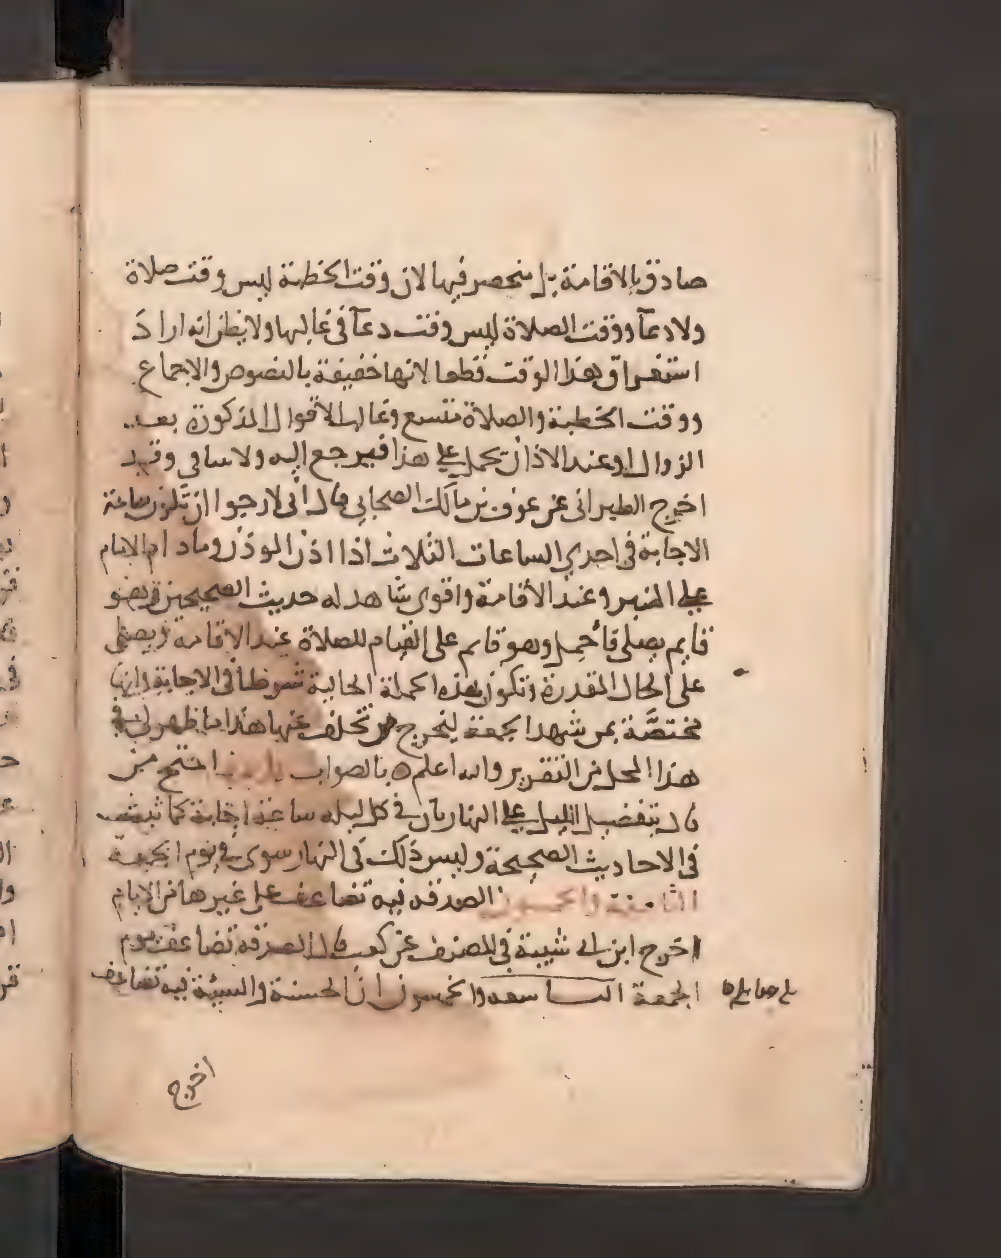 صادق بالاقامة بل منحصر فيها لان وقت الخطبة ليس وقت صلاة
ولا دعآ ووقت الصلاة ليس وقت دعآ في غالبها ولا يظن انه اراد
استغراق هذا الوقت قطعا لانها خفيفة بالنصوص والاجماع
ووقت الخطبة والصلاة متسع وغالب الاقوال المذكورة بعد
الزوال او عند الاذان تحمل على هذا فيرجع اليه ولا سافى وقد
اخرج الطبرانى عن عوف بن مالك الصحابي قال انى لارجوا ان تكون ساعة
الاجابة فى احدى الساعات الثلاث اذا اذن الموذن ومادام الامام
على المنبر وعند الاقامة واقوى شاهد له حديث الصحيحين وهو
قايم يصلى فاحمل وهو قايم على القيام للصلاة عند الاقامة ويصلى
على الحال المقدرة وتكون هذه الجملة الحالية شرطا في الاجابة وانها
مختصة بمن شهد الجمعة ليخرج من تخلف عنها هذا ما ظهر لى فى
هذا المحل من التقرير والله اعلم ه بالصواب احتج من
قال بتفضيل الليل على النهار بان في كل ليله ساعة اجابة كما ثبت
في الاحاديث الصحيحة وليس ذلك في النهار سوى فى يوم الجمعة
الثامنة والخمسون الصدقه فيه تضاعف على غيرها من الايام
اخرج ابن ابى شيبة في المصنف عن كعب قال الصدقه تضاعف يوم
الجمعة التاسعه والخمسون ان الحسنة والسيئة فيه تضاعف
اخرج